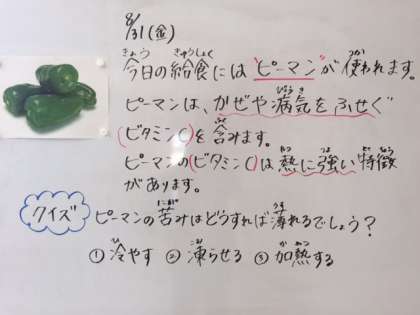 8/31(金)
今日の給食には"ピーマン"が使われます。
ピーマンは、かぜや病気をふせぐ
(ビタミンC)を含みます。
ピーマンの(ビタミンC)は熱に強い特徴
があります。
クイズ ピーマンの苦みはどうすれば薄れるでしょう?
①冷やす ②凍らせる ③加熱する